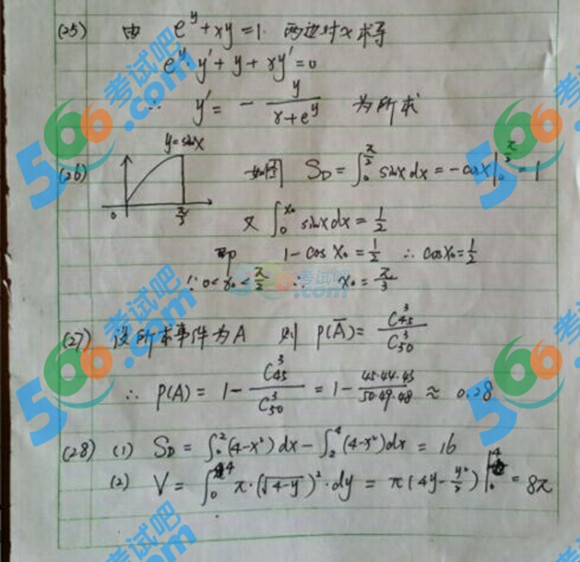 (25) 由 e^y+xy=1. 两边对x求导
e^y·y'+y+xy'=0
∴ y'=-y/(x+e^y) 为所求
y=sinx
(26) 如图 S_D=∫_0^{π/2} sinxdx=-cosx|_0^{π/2}=1
0 π/2
又 ∫_0^{x₀} sinxdx=1/2
即 1-cosx₀=1/2 ∴cosx₀=1/2
∵0<x₀<π/2 ∴ x₀=π/3
(27) 设所求事件为A 则 P(Ā)=C_{45}^3/C_{50}^3
∴ P(A)=1-C_{45}^3/C_{50}^3=1-45·44·43/50·49·48≈0.28
(28) (1) S_D=∫_0^2(4-x²)dx-∫_2^4(4-x²)dx=16
(2) V=∫_0^4 π·(√4-y)²·dy=π(4y-y²/2)|_0^4=8π
566考试吧.com